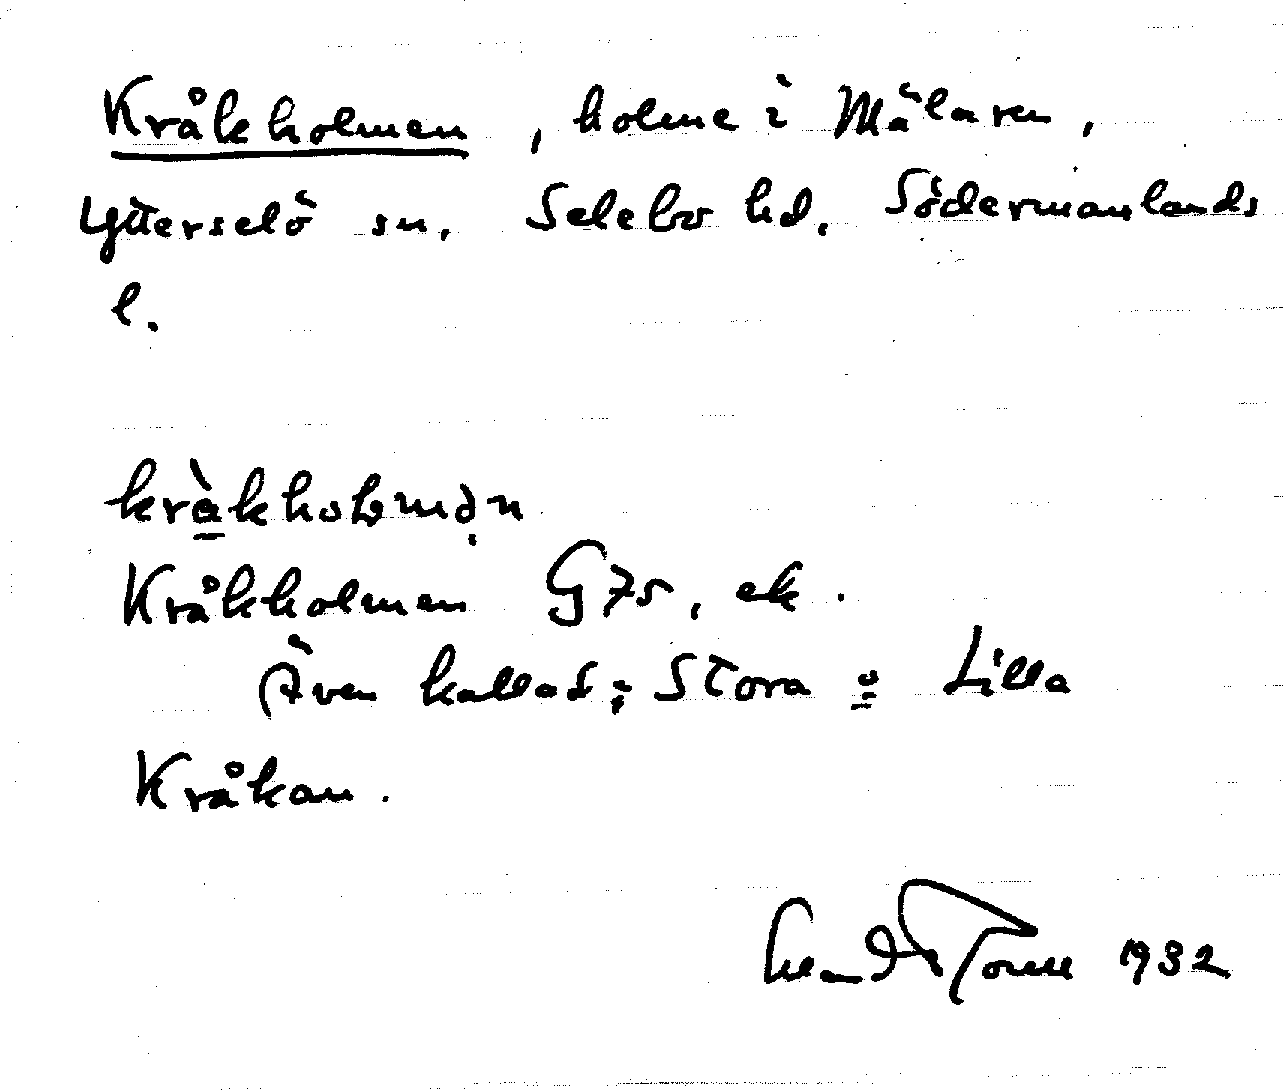 Kråkholmen, holme i Mälaren,
Ytterselö sn, Selebo hd, Södermanlands
l.
kråkholmən
Kråkholmen G75, ek.
Även kallad: Stora o Lilla
Kråkan.
1932